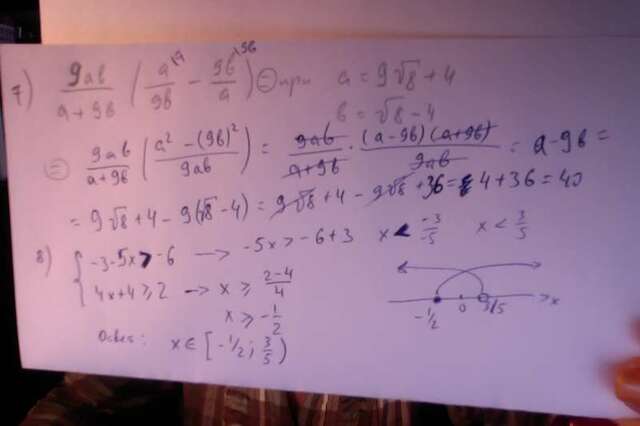 7) 9ab/(a+9b) (a/9b − 9b/a) ⊜ при a = 9√8 + 4
b = √8 − 4
⊜ 9ab/(a+9b) ((a² − (9b)²)/9ab) = 9ab/(a+9b) · (a−9b)(a+9b)/9ab = a − 9b =
= 9√8 + 4 − 9(√8 − 4) = 9√8 + 4 − 9√8 + 36 = 4 + 36 = 40
8) { −3−5x > −6 → −5x > −6+3 x < −3/−5 x < 3/5
4x+4 ≥ 2 → x ≥ (2−4)/4
x ≥ −1/2
−1/2 0 3/5 x
Ответ: x ∈ [−1/2; 3/5)